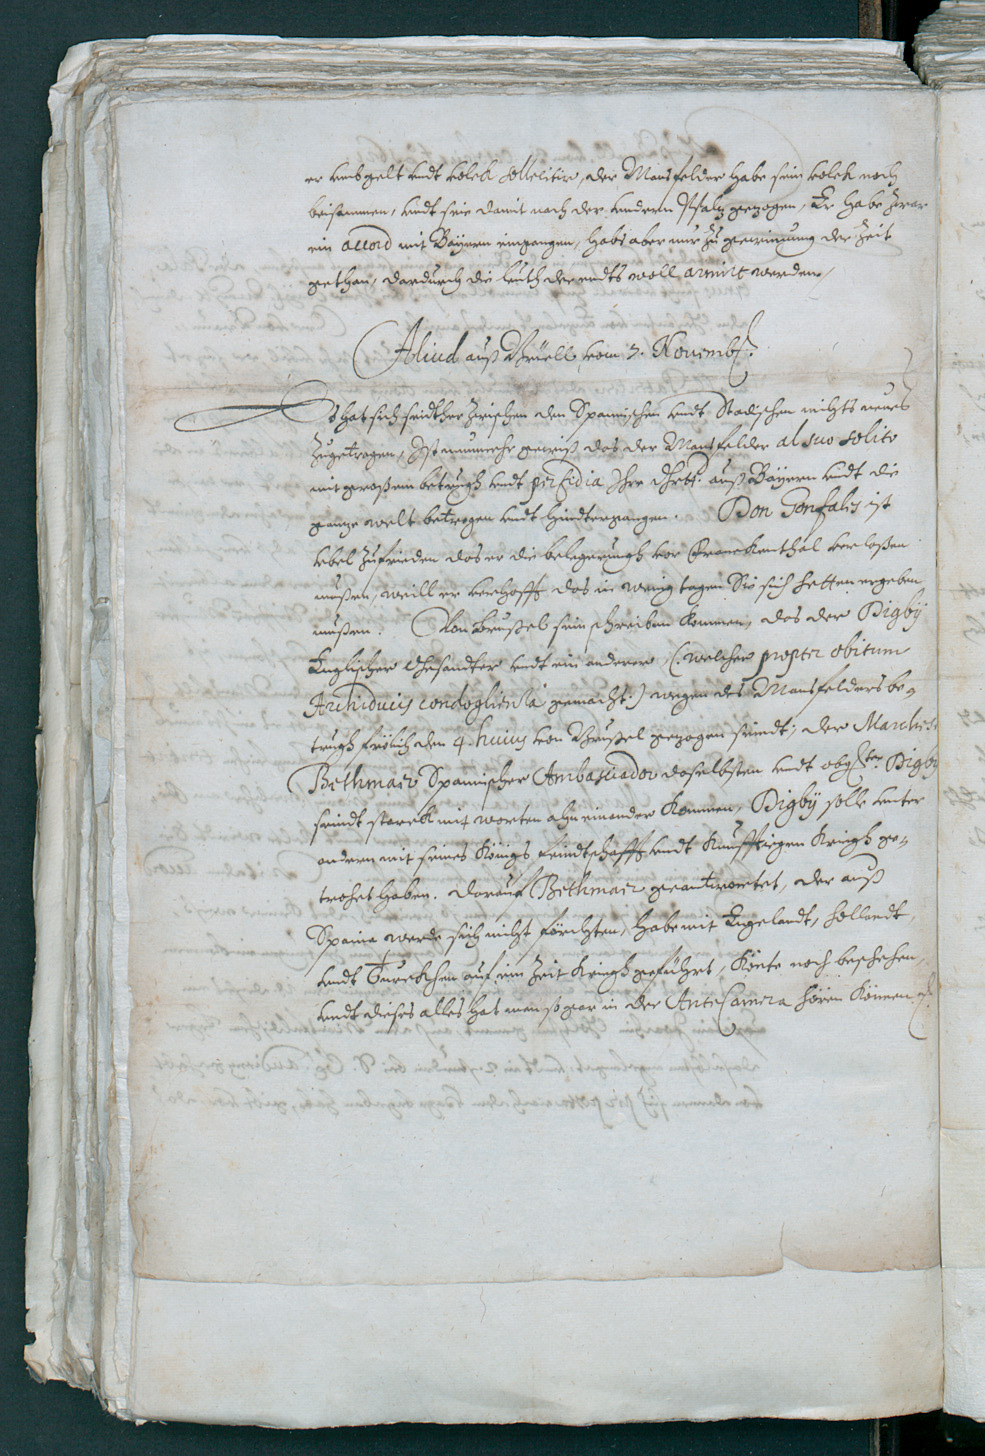 er umb gelt undt volck sollicitir, der Mansfelder habe sein volck noch
beisammen, undt seie damit nach der undern Pfaltz gezogen, Er habe zwar
ein accord mit Bayern eingangen, habs aber nur zu gewinnung der Zeit
gethan, dardurch die leuth der endts woll armirt werden,
Aliud auß Brüell vom 7. Novemb.
Es hat sich seidther zwischen den Spanischen undt Stadischen nichts neues
zugetragen, Ist nunmehr gewiß das der Mansfelder al suo solito
mit großem betrugh undt perfidia Ihre dhrl. auß Bayern undt die
gantze welt betrogen undt hindergangen. Don Gonsales ist
ubel zufrieden das er die belegerungh vor Franckenthal verlaßen
müßen, weill er verhofft das in wenig tagen Sie sich hetten ergeben
müßen. Von Brußel sein schreiben kommen, das der Digby
Englischer Gesandter undt ein anderer (: welcher propter obitum
Archiducis condoglienza gemacht :) wegen des Mansfelders be-
trugh frölich den 4. huius von Brußel gezogen seindt, der Marchese
Bethmar Spanischer Ambassador daselbsten undt obg.ter Digby
seindt starck mit worten ahn einander kommen, Digby solle unter
andern mit seines Königs feindtschafft undt künfftigen Kriegh ge-
trohet haben. darauf Bethmar geantwortet, der auß
Spania werde sich nicht förchten, habe mit Engelandt, Hollandt,
undt Turckhen auf ein Zeit Kriegh geführt, könte noch beschehen,
undt dieses alles hat man sogar in der AnteCamera hören können.